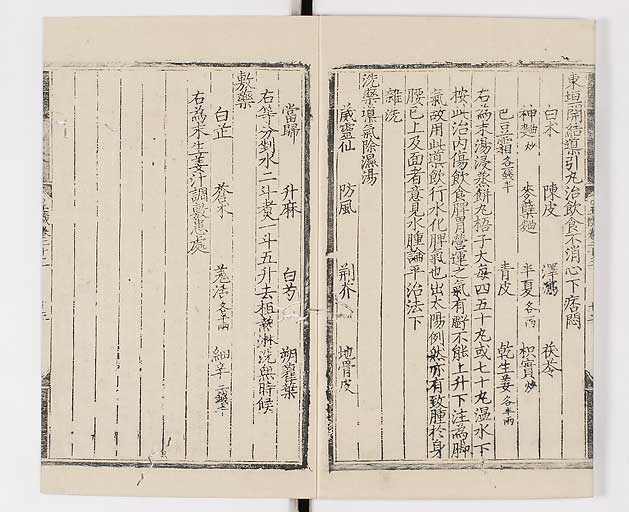 東垣開結導引丸治飲食不消心下痞悶
白朮 陳皮 澤瀉 茯苓
神麯炒 麥蘖麯 半夏各一兩 枳實炒
巴豆霜各錢半 青皮 乾生姜各半兩
右爲末湯浸蒸餅丸梧子大每四五十丸或七十丸溫水下
按此治內傷飲食脾胃營運之氣有虧不能上升下注爲脚
氣故用此導飲行水化脾氣也出太陽例然亦有致腫於身
腰已上及面者意見水腫論平治法下
雜洗
洗藥導氣除濕湯
葳靈仙 防風 荊芥 地骨皮
當歸 升麻 白芍 朔藋葉
右等分剉水二斗煑一斗五升去柤熱淋洗無時候
敷藥
白芷 蒼朮 羌活各半兩 細辛二錢半
右爲末生姜汁調敷患處